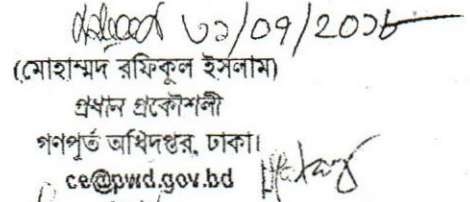 ৩১/০৭/২০১৮
(মোহাম্মদ রফিকুল ইসলাম)
প্রধান প্রকৌশলী
গণপূর্ত অধিদপ্তর, ঢাকা।
ce@pwd.gov.bd